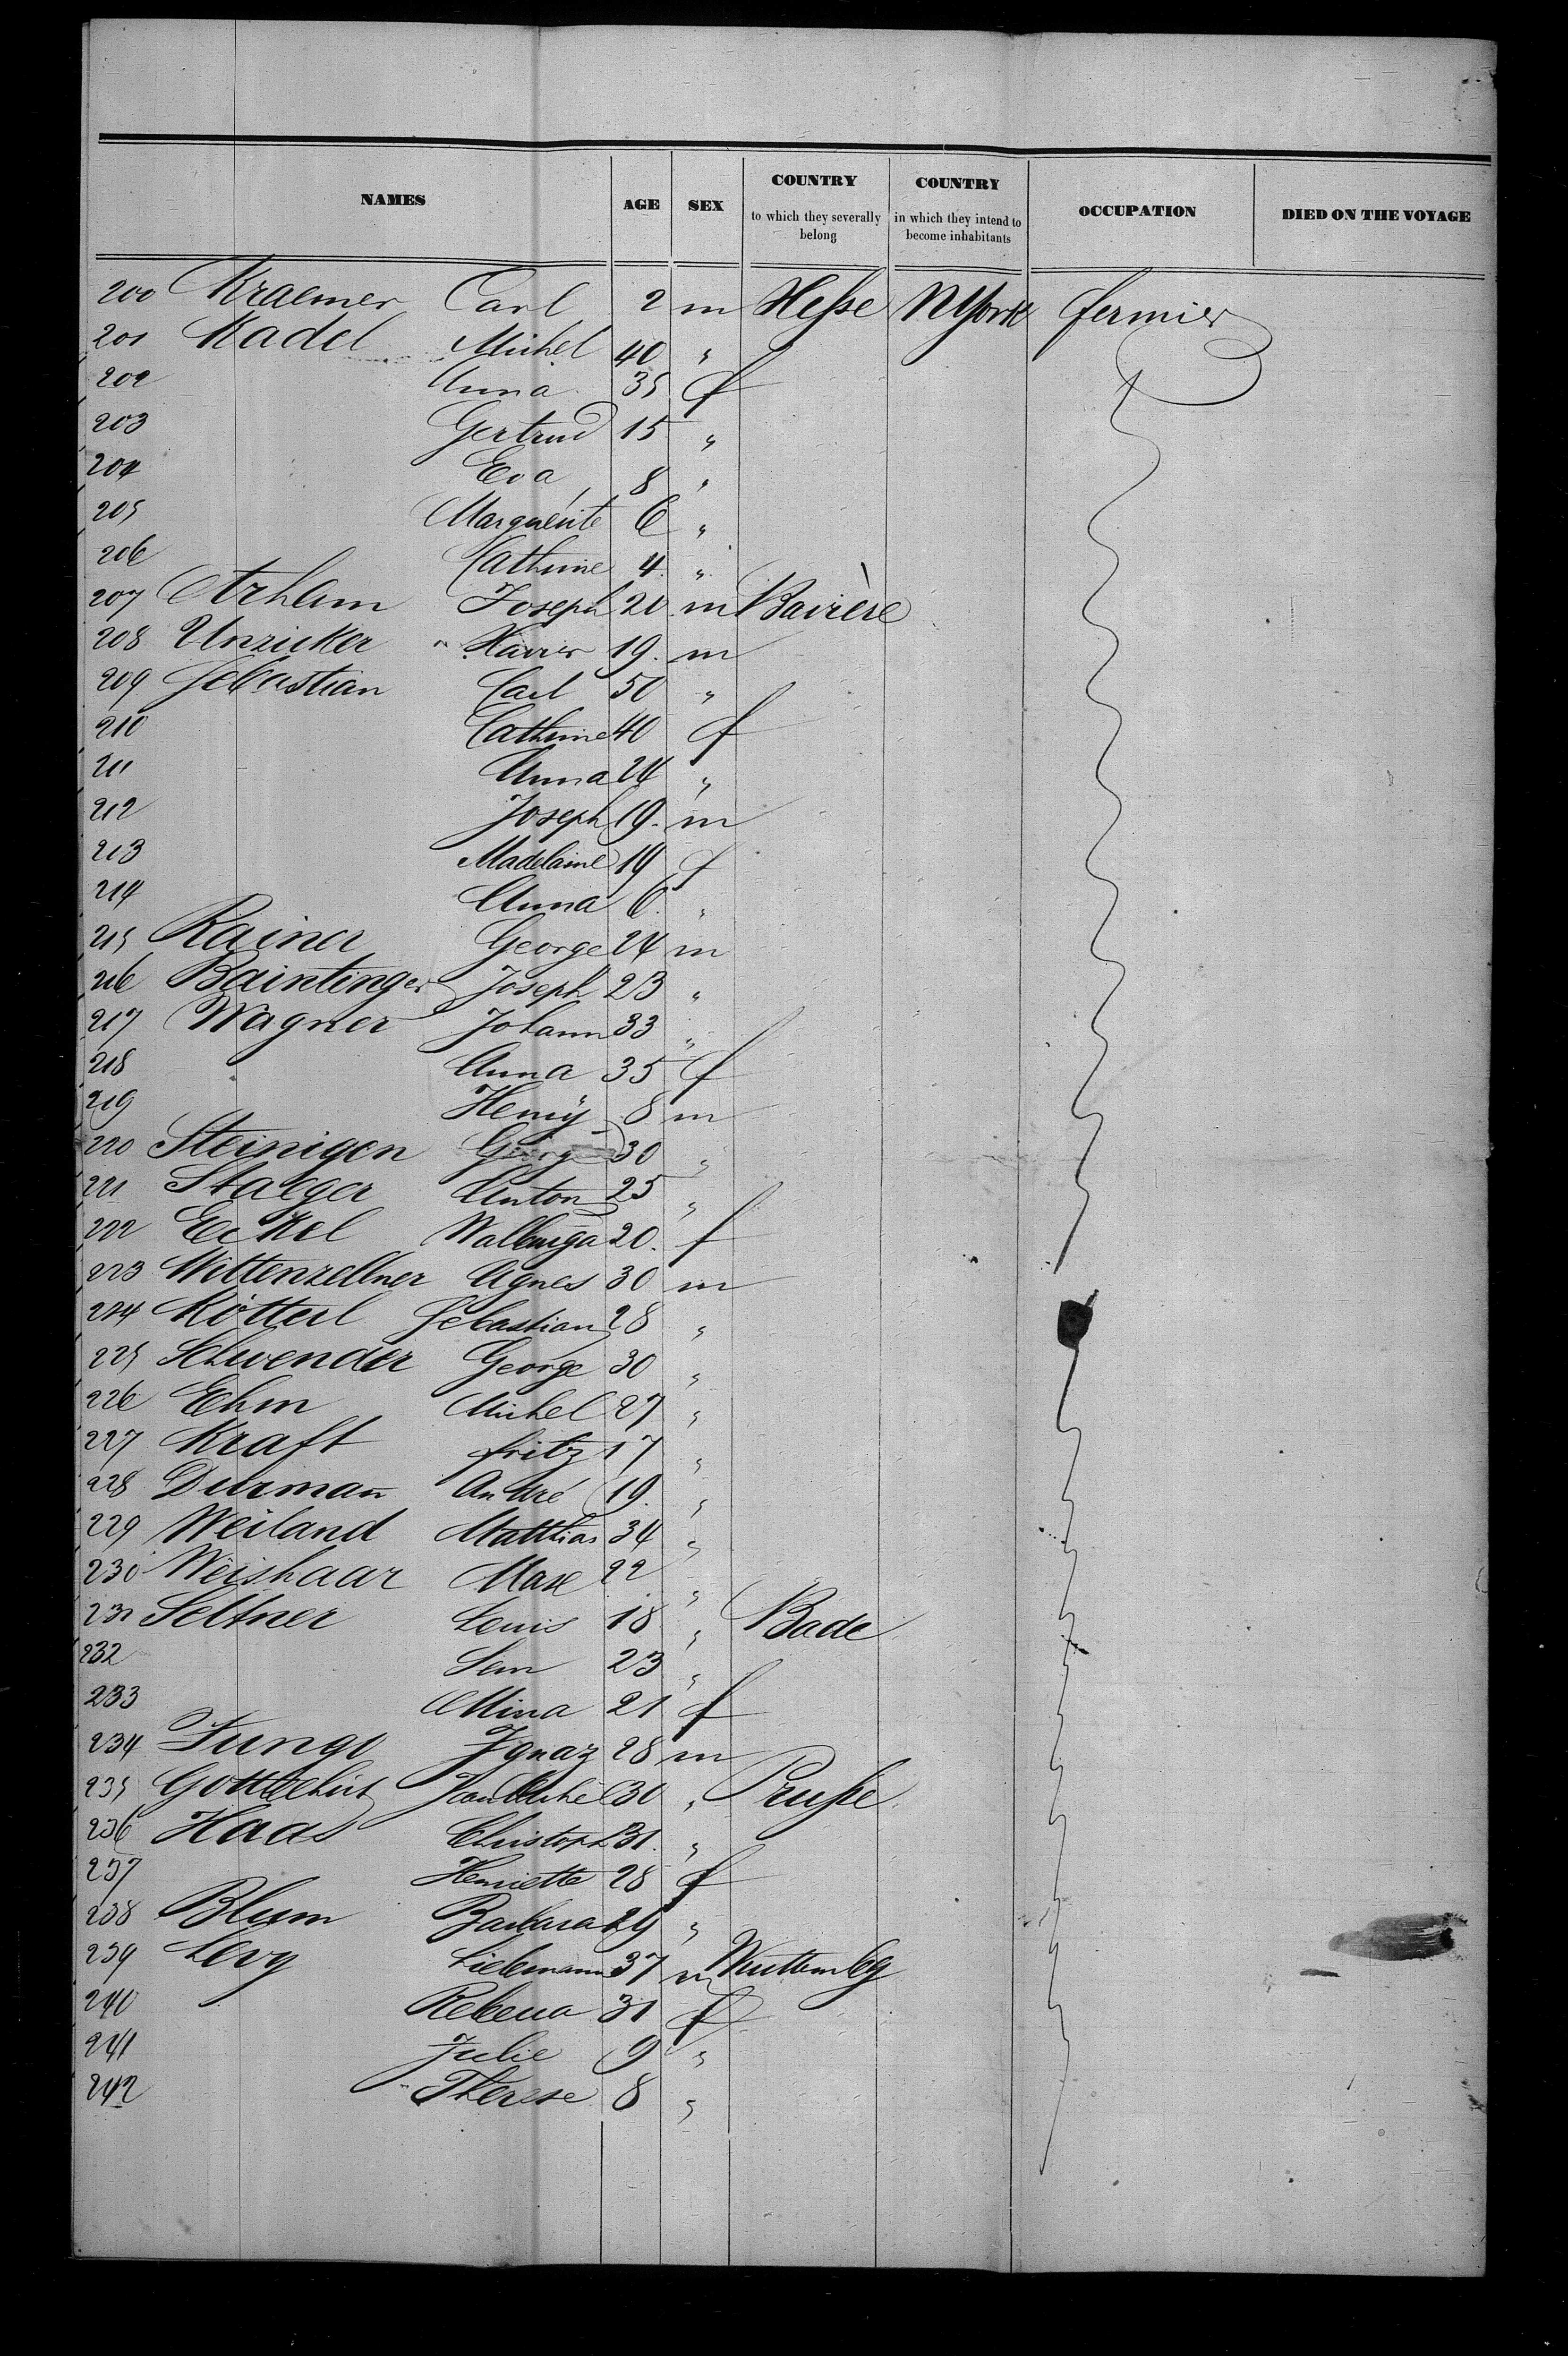 NAMES AGE SEX COUNTRY to which they severally belong COUNTRY in which they intend to become inhabitants OCCUPATION DIED ON THE VOYAGE
200 Kraemer Carl 2 m Hesse NYork fermier
201 Kadel Michel 40 "
202 Anna 35 f
203 Gertrud 15 "
204 Eva 8 "
205 Marguerite 6 "
206 Cathrine 4 "
207 Joseph 20 m Bavière
208 Unzicker Xavier 19 m
209 Sebastian Carl 50 "
210 Cathrine 40 f
211 Anna 24 "
212 Joseph 19 m
213 Madelaine 19 f
214 Anna 6 "
215 Rainer George 24 m
216 Baintinger Joseph 23 "
217 Wagner Johann 33 "
218 Anna 35 f
219 Henry 8 m
220 Steinigen George 30 "
221 Staeger Anton 25 "
222 Eckel Walburga 20 f
223 Wittenzellner Agnes 30 m
224 Kötterl Sebastian 28 "
225 Schwender George 30 "
226 Ehm Michel 27 "
227 Kraft fritz 17 "
228 Durman̄ André 19 "
229 Weiland Matthias 34 "
230 Weishaar Max 22 "
231 Seltner Louis 18 " Bade
232 23 "
233 Mina 21 f
234 Jung Ignaz 28 m
235 30 " Prusse
236 Haas Christoph 31 "
237 Henriette 28 f
238 Blum Barbara 29 "
239 Levy Liebmann 37 m Wuttembg
240 Rebecca 31 f
241 Julie 9 "
242 Therese 8 "